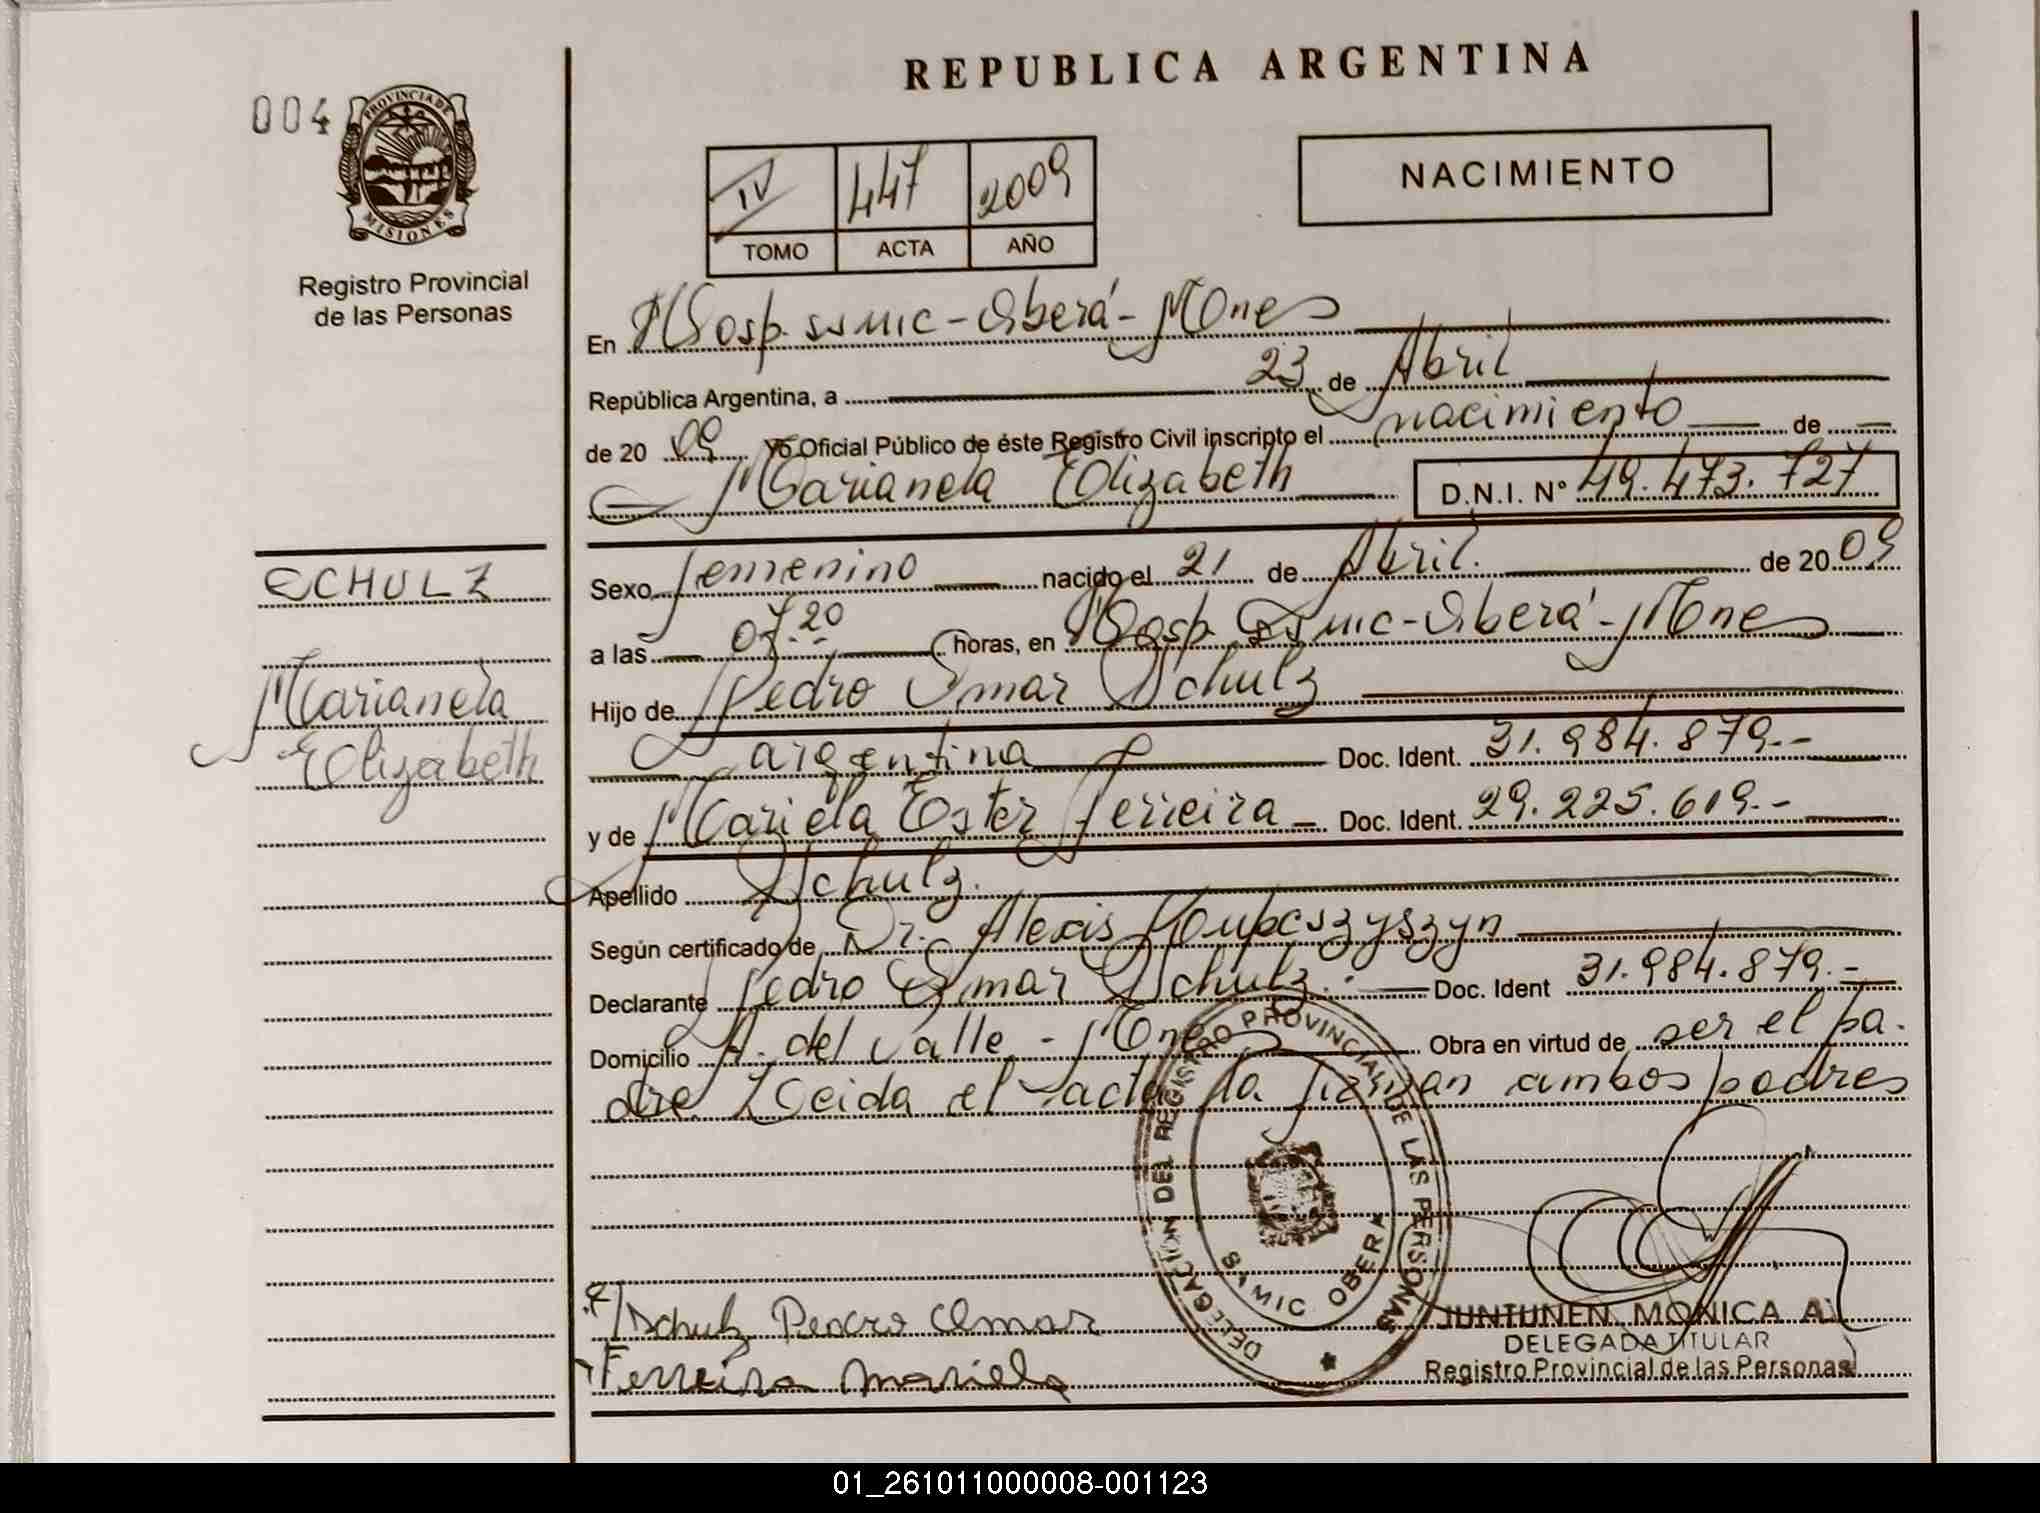 REPUBLICA ARGENTINA
004
PROVINCIA DE
MISIONES
Registro Provincial
de las Personas
IV 447 2009
TOMO ACTA AÑO
NACIMIENTO
En Hosp. SAMIC - Oberá - Mnes
República Argentina, a 23 de Abril
de 20 09 Yo Oficial Público de éste Registro Civil inscripto el nacimiento de
Marianela Elizabeth D.N.I. N° 49.473.727
SCHULZ
Marianela
Elizabeth
Sexo femenino nacido el 21 de Abril. de 20 09
a las 07.20 horas, en Hosp. SAMIC - Oberá - Mnes
Hijo de Pedro Omar Schulz
argentina Doc. Ident. 31.984.879.--
y de Mariela Ester Ferreira Doc. Ident. 29.225.619.--
Apellido Schulz.
Según certificado de Dr. Alexis
Declarante Pedro Omar Schulz.- Doc. Ident 31.984.879.-
Domicilio A. del Valle - Mnes Obra en virtud de ser el pa-
dre. Leida el acta la firman ambos padres
DELEGACION DEL REGISTRO PROVINCIAL DE LAS PERSONAS
SAMIC OBERA
Schulz Pedro Omar
Ferreira Mariela
JUNTUNEN, MONICA A.
DELEGADA TITULAR
Registro Provincial de las Personas
01_261011000008-001123